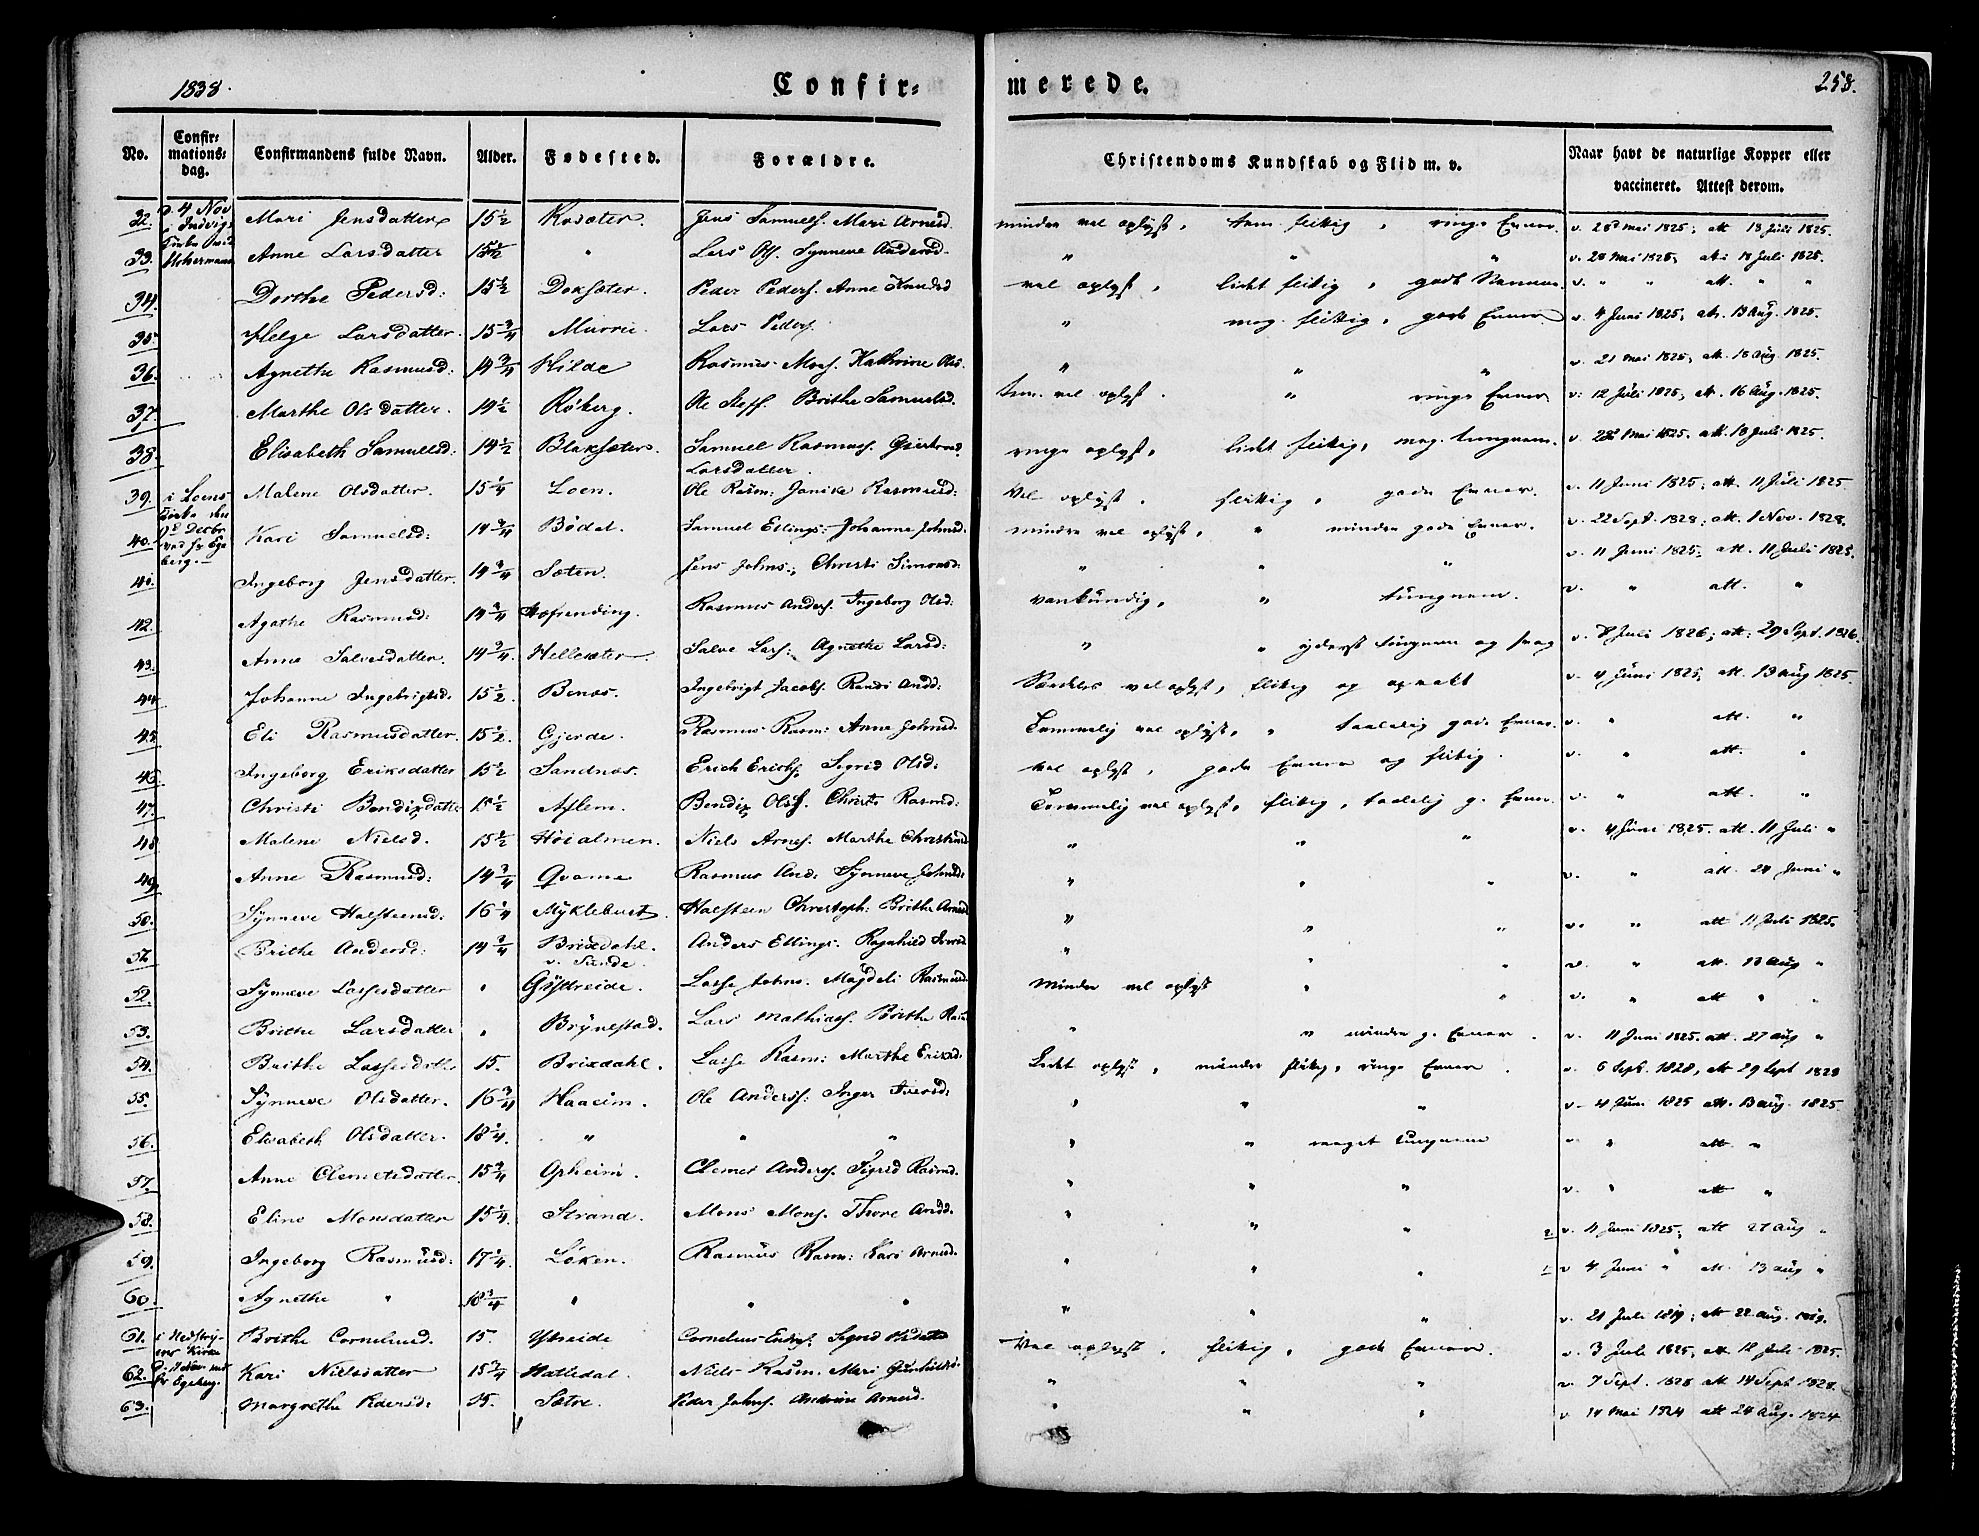 1838.
Confir=
merede.
258.
No.
Confir=
mations=
dag.
Confirmandens fulde Navn.
Alder.
Fødested.
Forældre.
Christendoms Kundskab og Flid m. v.
Naar havt de naturlige Kopper eller
vaccineret. Attest derom.
32. d. 4 Nov Mari Jensdatter 15 1/2 Rosæter. Jens Samuels. Mari Arnesd. mindre vel oplyst, tem. flittig, ringe Evner. v. 28d Mai 1825; att 18 Juli 1825.
i Indvig
33. Anne Larsdatter 15 1/2 " Lars Ols. Synneve Andersd. " " " v. 28 Mai 1825, att 18 Juli 1825.
34. Dorthe Pedersd: 15 1/2 Peder Peders. Anne Knudsd vel oplyst, lidet flitig, gode v. " " att. " "
35. Helge Larsdatter. 15 3/4 Murrie. Lars Peders. " meg. flittig, gode Evner. v. 4 Juni 1825, att. 13 Aug. 1825.
36. Agnethe Rasmusd: 14 3/4 Hilde Rasmus Mons. Kathrine Ols. " " " v. 21 Mai 1825, att. 18 Aug. 1825.
37. Marthe Olsdatter. 14 1/2 Røberg. Ole Steff. Brithe Samuelsd. tem. vel oplyst. " ringe Evner v: 12 Juli 1825, att. 16 Aug. 1825.
38. Elisabeth Samuelsd: 14 1/2 Blaksæter. Samuel Rasmuss. Gjertrud ringe oplyst, lidet flitig, meg. tungnem. v. 28d Mai 1825. att. 18 Juli 1825.
Larsdatter.
39. i Loens Malene Olsdatter. 15 1/4 Loen. Ole Rasm: Janike Rasmusd: Vel oplyst. flittig, gode Evner. v. 11 Juni 1825; att. 11 Juli 1825.
Kirke den
40. Kari Samuelsd: 14 3/4 Bødal. Samuel Ellings: Johanne Johnsd: mindre vel oplyst, " mindre gode Evner. v. 22 Sept. 1828; att. 1 Nov. 1828.
ved hr Ege
berg.
41. Ingeborg Jensdatter. 14 3/4 Sæten. Jens Johns., Christi Simonsd: " " " v. 11 Juni 1825. att. 11 Juli 1825.
42. Agathe Rasmusd: 14 3/4 Rasmus Anders. Ingeborg Olsd: vankundig, " tungnem. v. " att. "
43. Anne Salvesdatter. 14 3/4 Hellesæter. Salve Lars: Agnethe Larsd: " " yderst tungnem og svag v. 8 Juli 1826; att. 29 Sept. 1826.
44. Johanne Ingebrigtsd. 15 1/2. Benæs. Ingebrigt Jacobs. Randi Andd: Særdeles vel oplyst, flitig og opvakt v. 4 Juni 1825; att. 13 aug 1825.
45. Eli Rasmusdatter. 15 1/2. Gjerde. Rasmus Rasm: Anne Johnsd. Temmelig vel oplyst, " taalelig gode Evner. v. " att. "
46. Ingeborg Eriksdatter 15 1/2 Sandnæs. Erich Erichs. Sigrid Olsd: vel oplyst, gode Evner og flitig. v. " att. "
47. Christi Bendixdatter 15 1/2 Aflem. Bendix Ols. Christi Rasmd: Temmelig vel oplyst, flitig, taalelig g. Evner. v. " att. "
48. Malene Nielsd. 15 1/2 Høialmen. Niels Arnes. Marthe Christiansd " " " v. 4 Juni 1825. att. 11 Juli "
49. Anne Rasmusd: 14 3/4 Qvame Rasmus And: Synneve Johnsd: " " " v. " att. 24 Juni "
50. Synneve Halsteensd: 16 1/4 Myklebust. Halsteen Christoph: Brithe Arnesd " " " v. " att 11 Juli 1825.
51. Brithe Andersd: 14 3/4 Brixdahl. Anders Ellings. Ragnhild Iversd " " " v. " att. 13 Aug "
v. Sunde.
52. Synneve Lassesdatter " Gytreide. Lasse Johns. Magdeli Rasmusd. Minder vel oplyst " " v. " att " "
53. Brithe Larsdatter " Brynestad. Lars Mathias. Brithe Rasm " " mindre g. Evner. v. 11 Juni 1825. att. 27 aug "
54. Brithe Lassesdatter 15. Brixdahl. Lasse Rasm: Marthe Eriksd. Lidet oplyst, mindre flitig, ringe Evner. v. 6 Sept. 1828, att 29 Sept 1828
55. Synneve Olsdatter. 16 3/4 Haaeim. Ole Anders: Inger Iversd: " " " v. 4 Juni 1825 att. 13 aug. 1825.
56. Elisabeth Olsdatter. 18 1/4. " " " " " meget tungnem v. " att. "
57. Anne Clemetsdatter. 15 3/4 Opheim. Clemet Anders. Sigrid Rasmd. " " " v. " att "
58. Eline Monsdatter 15 1/4. Strand. Mons Mons. Thore Andd. " " " 2. v. 4 Juni 1825, att 27 Aug "
59. Ingeborg Rasmusd: 17 1/4. Løken. Rasmus Rasm: Kari Arnesd. " " " 1. v. 4 Juni " att. 13 aug "
60. Agnethe " 18 3/4 " " " " " " v. 21 Juli 1819; att 22 aug. 1819.
61. i Nedstry= Brithe Cornelsd. 15. Ytreide Cornelius Sigrid Olsdatter Vel oplyst, flitig, gode Evner. v. 3 Juli 1825, att. 12 Juli 1825.
ner Kirke
62. Kari Nielsdatter 15 3/4 Hatledal. Niels Rasm. Mari " " " v. 7 Sept. 1828 att 14 Sept 1828.
hr Egeberg.
63. Margrethe Pedersd: 15. Sætre. Peder Johns. Andrine Arnesd. " " " v. 14 Mai 1824 att 24 Aug. 1824